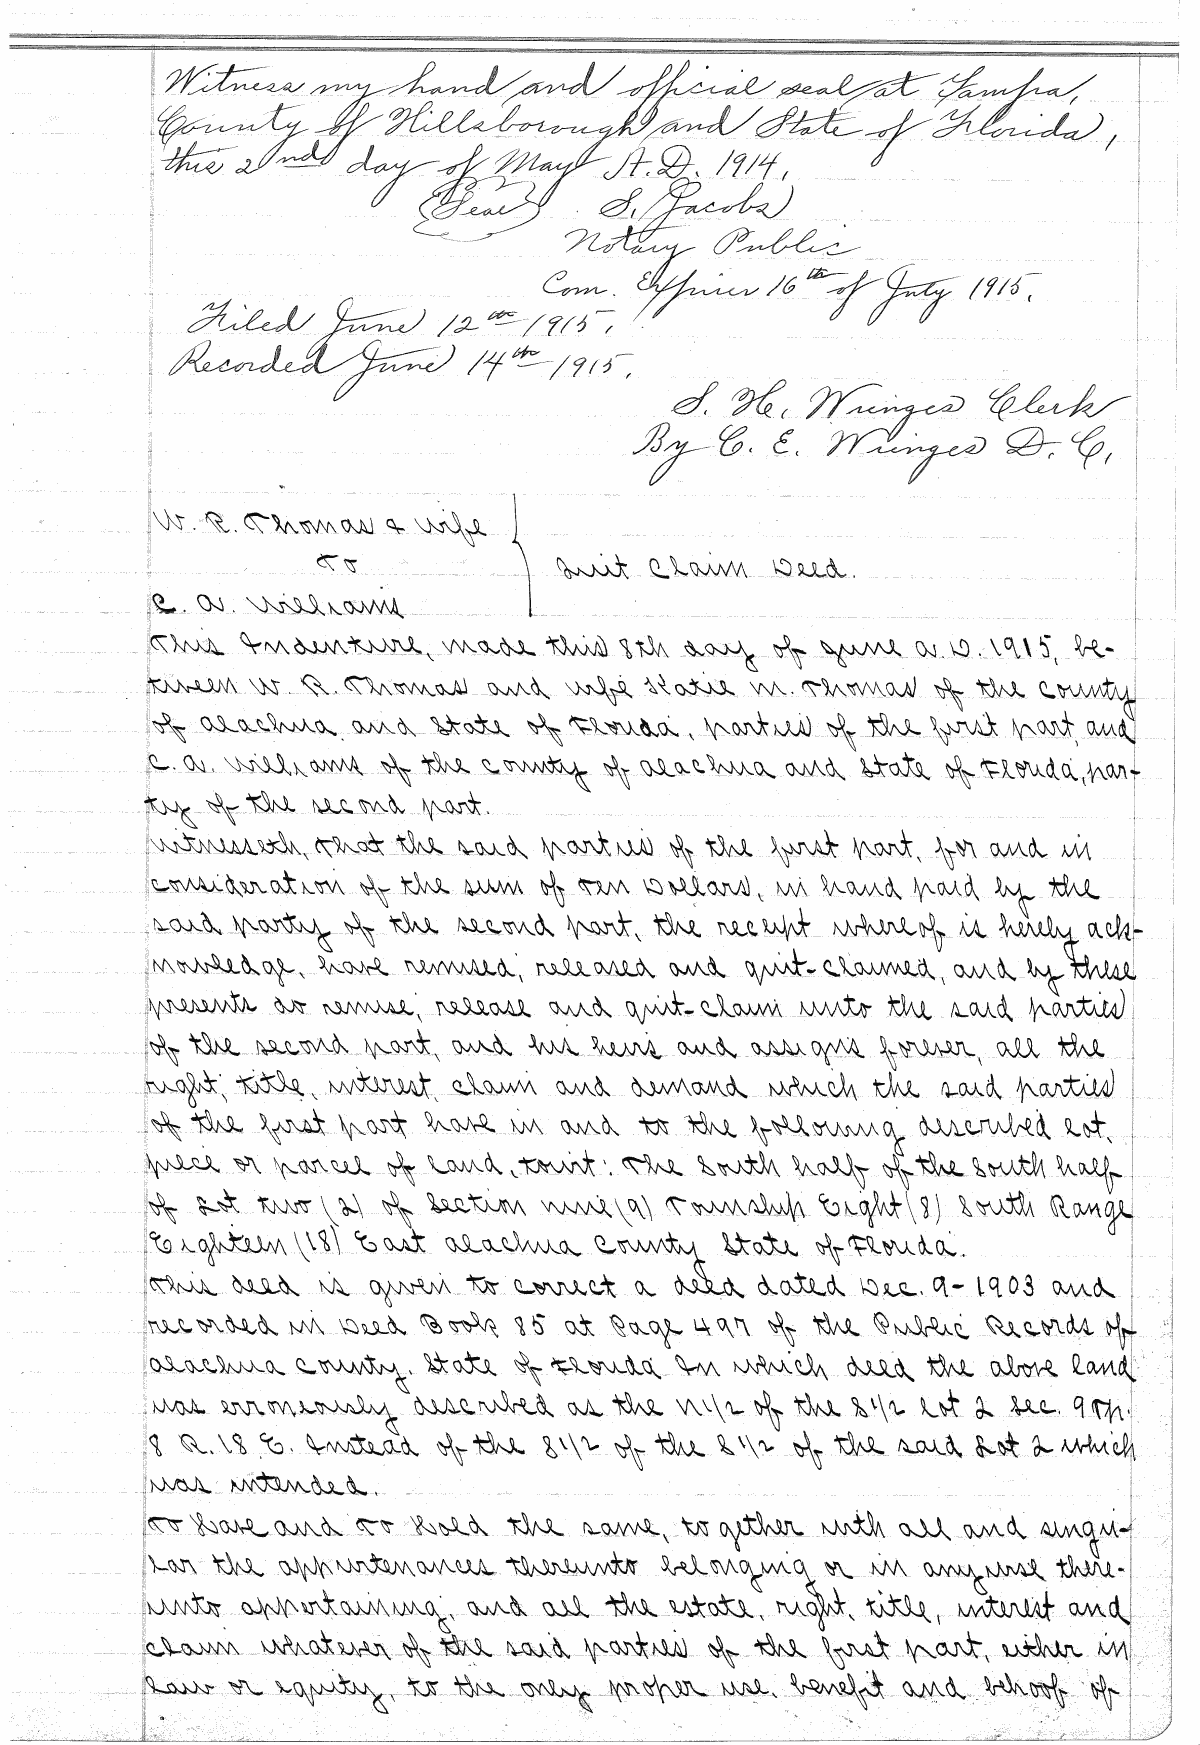 Witness my hand and official seal at Tampa,
County of Hillsborough and State of Florida,
this 2nd day of May A.D. 1914.
(Seal) S. Jacobs
Notary Public
Com. Expires 16th of July 1915.
Filed June 12th 1915.
Recorded June 14th 1915.
S. H. Wienges Clerk
By C. E. Wienges D. C.
W. R. Thomas & Wife
To
Quit Claim Deed.
C. A. Williams
This Indenture, made this 8th day of June A.D. 1915, be-
tween W. R. Thomas and wife Katie M. Thomas of the County
of Alachua and State of Florida, parties of the first part and
C. A. Williams of the County of Alachua and State of Florida, par-
ty of the second part.
Witnesseth, that the said parties of the first part, for and in
consideration of the sum of Ten Dollars, in hand paid by the
said party of the second part, the receipt whereof is hereby ack-
nowledge, have remised, released and quit-claimed, and by these
presents do remise, release and quit-claim unto the said parties
of the second part, and his heirs and assigns forever, all the
right, title, interest, claim and demand which the said parties
of the first part have in and to the following described lot,
piece or parcel of land, towit: The South half of the South half
of Lot two (2) of Section nine (9) Township Eight (8) South Range
Eighteen (18) East Alachua County State of Florida.
This deed is given to correct a deed dated Dec. 9-1903 and
recorded in Deed Book 85 at Page 497 of the Public Records of
Alachua County, State of Florida In which deed the above land
was erroneously described as the N1/2 of the S1/2 Lot 2 Sec. 9 Tp.
8 R. 18 E. Instead of the S1/2 of the S1/2 of the said Lot 2 which
was intended.
To Have and To Hold the same, together with all and singu-
lar the appurtenances thereunto belonging or in anywise there-
unto appertaining, and all the estate, right, title, interest and
claim whatever of the said parties of the first part, either in
law or equity, to the only proper use, benefit and behoof of